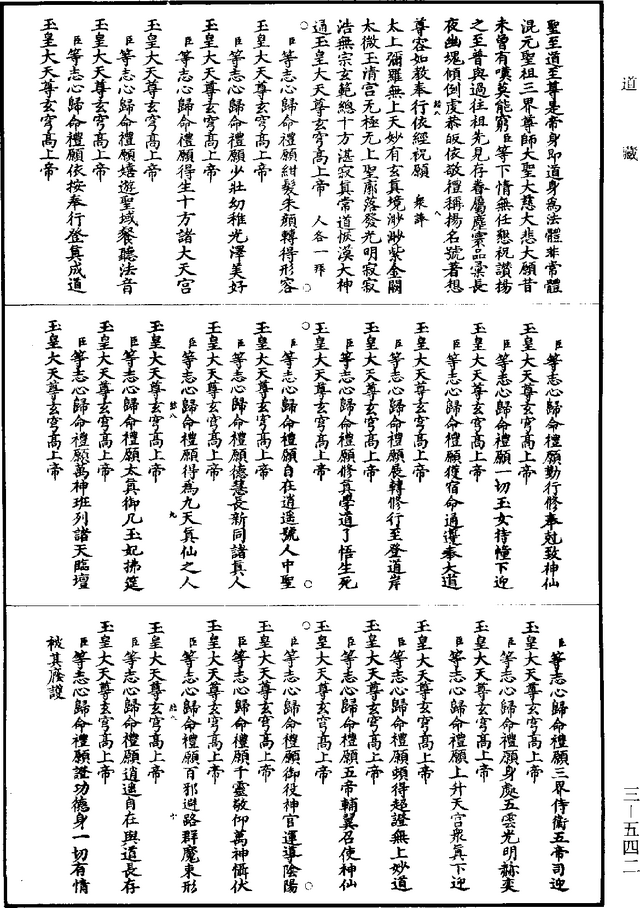 道藏
聖至道至尊是帝身即道身為法體非常體
混元聖祖三界尊師大聖大慈大悲大願昔
未曾有嘆莫能窮臣等下情無任懇祝讚揚
之至普與過往祖先見存眷屬塵寰品彙長
夜幽魂傾倒虔恭皈依敬禮稱揚名號著想
尊容如教奉行依經祝願　衆誦
太上彌羅無上天妙有玄真境渺渺紫金闕
太微玉清宮无極无上聖廓落發光明寂寂
浩無宗玄範總十方湛寂真常道恢漠大神
通玉皇大天尊玄穹高上帝　人各一拜
臣等志心歸命禮願紺髮朱顔轉得形容
玉皇大天尊玄穹高上帝
臣等志心歸命禮願少壯幼稚光澤美好
玉皇大天尊玄穹高上帝
臣等志心歸命禮願得生十方諸大天宮
玉皇大天尊玄穹高上帝
臣等志心歸命禮願嬉遊聖域餐聽法音
玉皇大天尊玄穹高上帝
臣等志心歸命禮願依按奉行登真成道
玉皇大天尊玄穹高上帝
臣等志心歸命禮願勤行修奉尅致神仙
玉皇大天尊玄穹高上帝
臣等志心歸命禮願一切玉女持幢下迎
玉皇大天尊玄穹高上帝
臣等志心歸命禮願獲宿命通遵奉大道
玉皇大天尊玄穹高上帝
臣等志心歸命禮願展轉修行至登道岸
玉皇大天尊玄穹高上帝
臣等志心歸命禮願修真學道了悟生死
玉皇大天尊玄穹高上帝
臣等志心歸命禮願自在逍遥號人中聖
玉皇大天尊玄穹高上帝
臣等志心歸命禮願德慧長新同諸真人
玉皇大天尊玄穹高上帝
臣等志心歸命禮願得為九天真仙之人
玉皇大天尊玄穹高上帝
臣等志心歸命禮願太真御几玉妃拂筵
玉皇大天尊玄穹高上帝
臣等志心歸命禮願萬神班列諸天臨壇
玉皇大天尊玄穹高上帝
臣等志心歸命禮願三界侍衛五帝司迎
玉皇大天尊玄穹高上帝
臣等志心歸命禮願身處五雲光明赫奕
玉皇大天尊玄穹高上帝
臣等志心歸命禮願上升天宮衆真下迎
玉皇大天尊玄穹高上帝
臣等志心歸命禮願頓得超證無上妙道
玉皇大天尊玄穹高上帝
臣等志心歸命禮願五帝輔翼召使神仙
玉皇大天尊玄穹高上帝
臣等志心歸命禮願御役神官運導陰陽
玉皇大天尊玄穹高上帝
臣等志心歸命禮願千靈敬仰萬神懾伏
玉皇大天尊玄穹高上帝
臣等志心歸命禮願百邪避路群魔束形
玉皇大天尊玄穹高上帝
臣等志心歸命禮願逍遥自在與道長存
玉皇大天尊玄穹高上帝
臣等志心歸命禮願證功德身一切有情
被其廕護
三—五四二